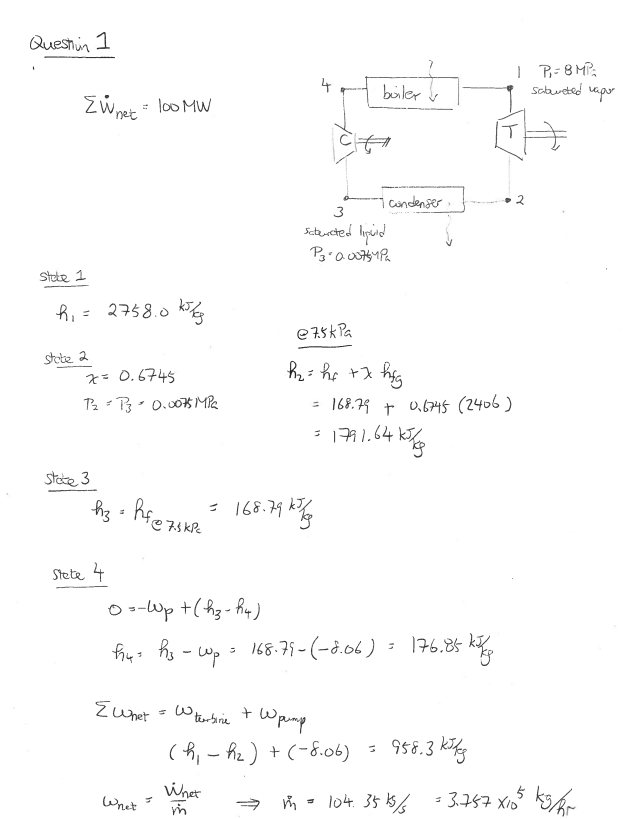 Question 1
ΣẆnet = 100 MW
4
boiler
1 P₁ = 8 MPa
saturated vapor
C
T
3
condenser
2
saturated liquid
P₃ = 0.0075 MPa
State 1
h₁ = 2758.0 kJ/kg
State 2
x = 0.6745
P₂ = P₃ = 0.0075 MPa
@ 7.5 kPa
h₂ = hf + x hfg
= 168.79 + 0.6745 (2406)
= 1791.64 kJ/kg
State 3
h₃ = hf @ 7.5 kPa = 168.79 kJ/kg
State 4
0 = -wp + (h₃ - h₄)
h₄ = h₃ - wp = 168.79 - (-8.06) = 176.85 kJ/kg
Σwnet = wturbine + wpump
(h₁ - h₂) + (-8.06) = 958.3 kJ/kg
wnet = Ẇnet/ṁ ⇒ ṁ = 104.35 kg/s = 3.757 x10⁵ kg/hr